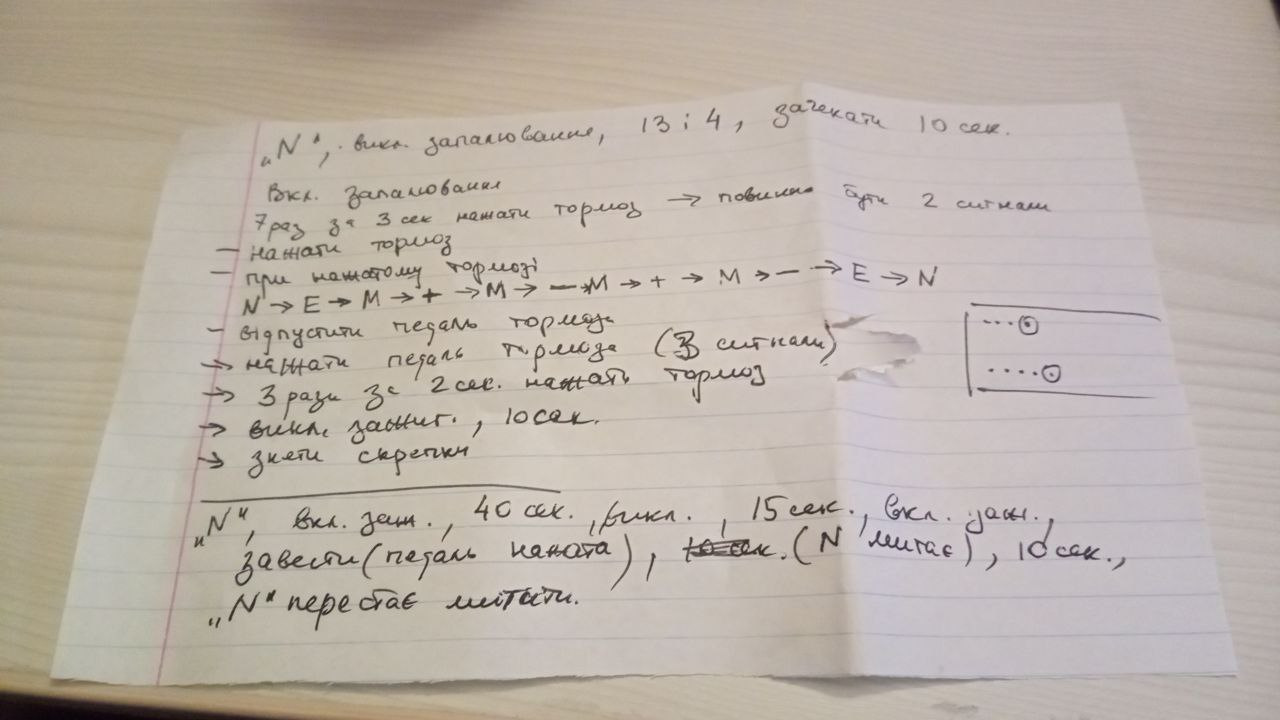 „N“, викл. запалювання, 13 і 4, зачекати 10 сек.
Вкл. запалювання
7 раз за 3 сек нажати тормоз → повинно бути 2 сигнали
– нажати тормоз
– при нажатому тормозі
N → E → M → + → M → – → M → + → M → – → E → N
– відпустити педаль тормоза
→ нажати педаль тормоза (3 сигнали)
→ 3 рази за 2 сек. нажать тормоз
→ викл. зажиг., 10 сек.
→ зняти скрепки
„N“, вкл. заж., 40 сек., викл., 15 сек., вкл. заж.,
завести (педаль нажата), (N мигає), 10 сек.,
„N“ перестає мигати.